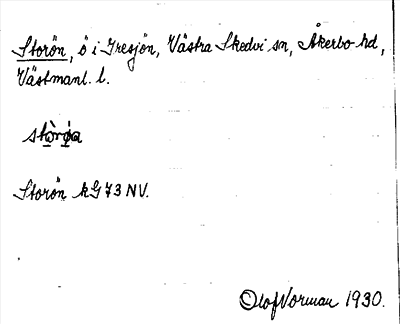 Storön, ö i Gresjön, Västra Skedvi sn, Åkerbo hd,
Västmanl. l.
stò̤rø̤a
Storön kG 73 NV.
Olof Norman 1930.